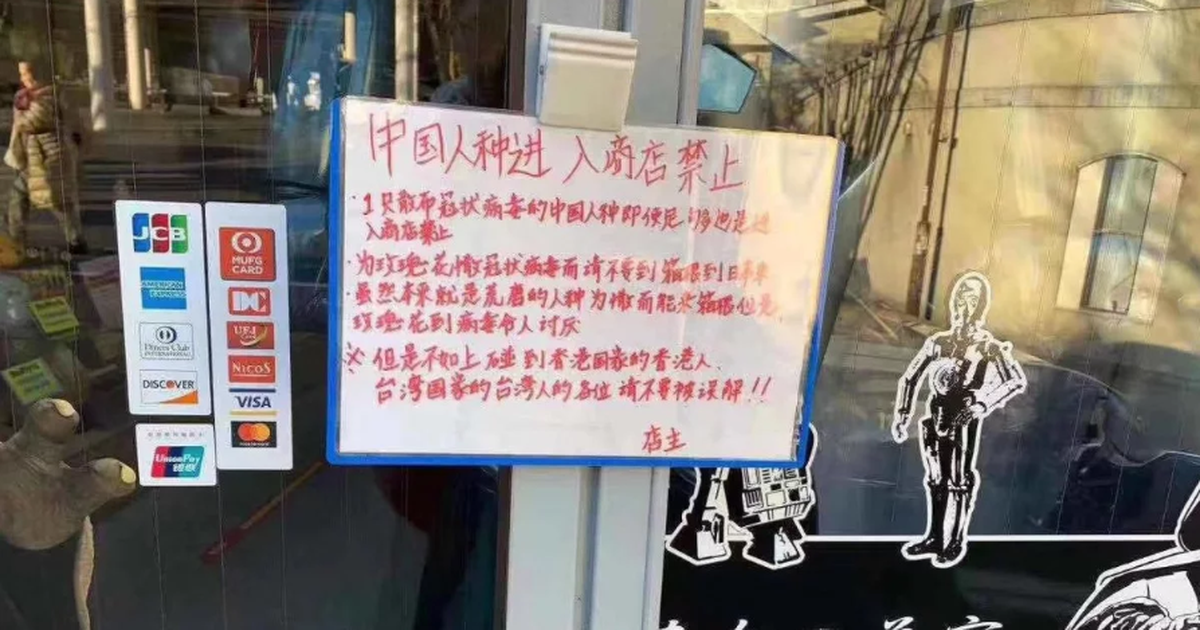 中国人种进 入商店禁止
·1只散布冠状病毒的中国人种即便是
入商店禁止
·为玫瑰花撒冠状病毒而请不要到箱根到日本来
·虽然本来就是荒唐的人种为撒而能来箱根但是、
玫瑰花到病毒令人讨厌
※但是不如上碰到香港国家的香港人、
台湾国家的台湾人的各位请不要被误解!!
店主
JCB
AMERICAN
EXPRESS
Diners Club
INTERNATIONAL
DISCOVER
UnionPay
银联
MUFG
CARD
DC
UFJ
Card
NICOS
VISA